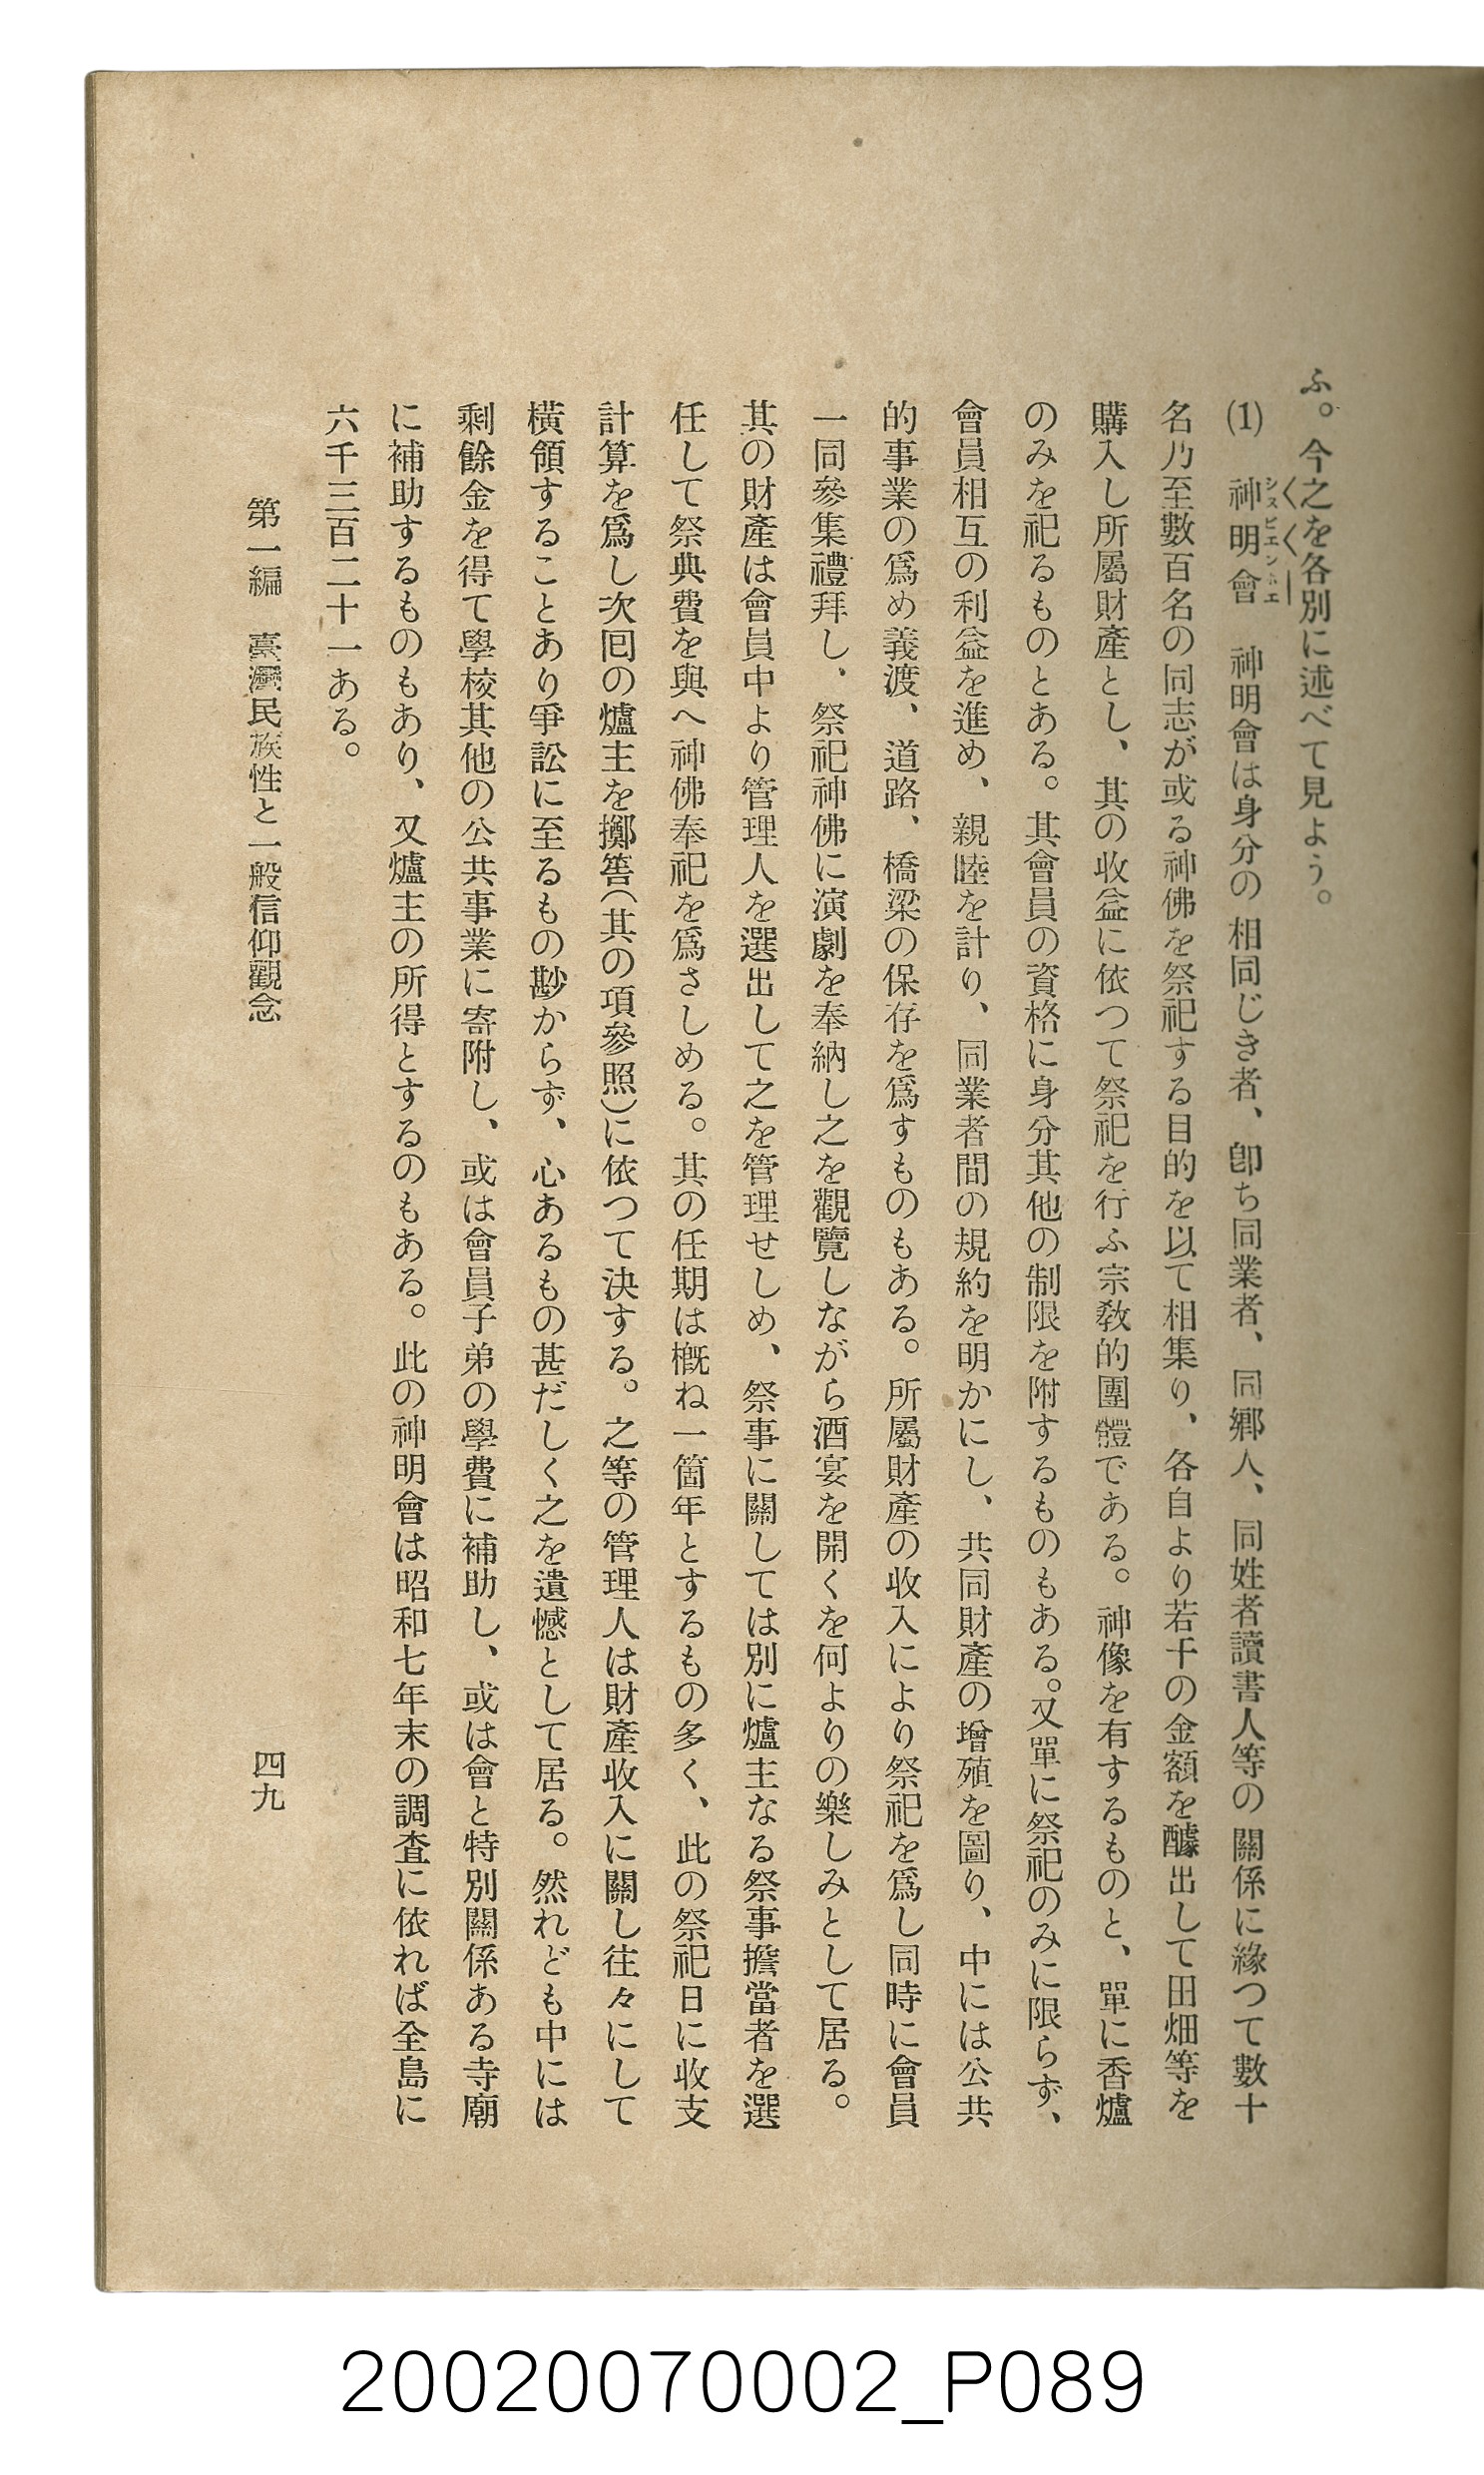 ふ。今之を各別に述べて見よう。
(1)　神明會　神明會は身分の相同じき者、卽ち同業者、同鄕人、同姓者讀書人等の關係に緣つて數十
シスビエンホエ
名乃至數百名の同志が或る神佛を祭祀する目的を以て相集り、各自より若千の金額を醵出して田畑等を
購入し所屬財產とし、其の收益に依つて祭祀を行ふ宗敎的團體である。神像を有するものと、單に香爐
のみを祀るものとある。其會員の資格に身分其他の制限を附するものもある。又單に祭祀のみに限らず、
會員相互の利益を進め、親睦を計り、同業者間の規約を明かにし、共同財產の增殖を圖り、中には公共
的事業の爲め義渡、道路、橋梁の保存を爲すものもある。所屬財產の收入により祭祀を爲し同時に會員
一同參集禮拜し、祭祀神佛に演劇を奉納し之を觀覽しながら酒宴を開くを何よりの樂しみとして居る。
其の財產は會員中より管理人を選出して之を管理せしめ、祭事に關しては別に爐主なる祭事擔當者を選
任して祭典費を與へ神佛奉祀を爲さしめる。其の任期は槪ね一箇年とするもの多く、此の祭祀日に收支
計算を爲し次回の爐主を擲筶(其の項參照)に依つて決する。之等の管理人は財產收入に關し往々にして
橫領することあり爭訟に至るもの尠からず、心あるもの甚だしく之を遺憾として居る。然れども中には
剩餘金を得て學校其他の公共事業に寄附し、或は會員子弟の學費に補助し、或は會と特別關係ある寺廟
に補助するものもあり、又爐主の所得とするのもある。此の神明會は昭和七年末の調査に依れば全島に
六千三百二十一ある。
第一編　臺灣民族性と一般信仰觀念
四九
20020070002_P089